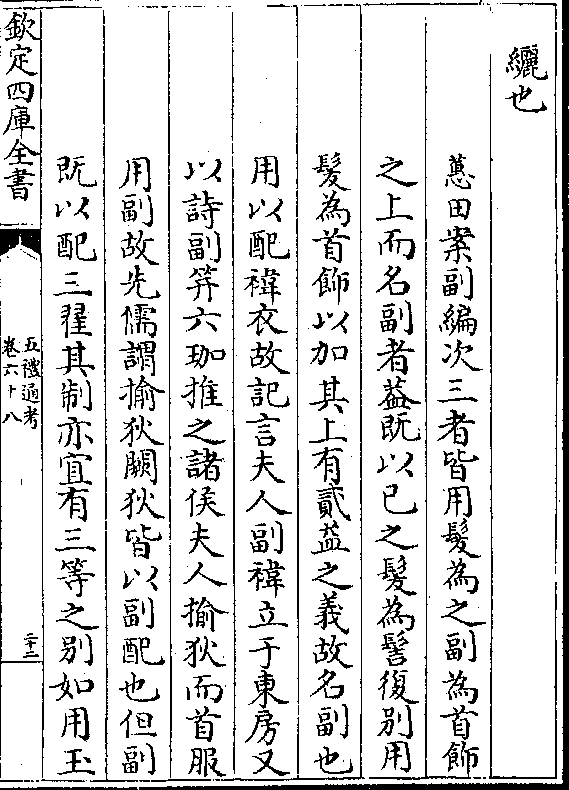 纚也
蕙田案副編次三者皆用髮為之副為首飾
之上而名副者葢既以已之髮為髻復別用
髮為首飾以加其上有貳益之義故名副也
用以配褘衣故記言夫人副褘立于東房又
以詩副笄六珈推之諸侯夫人揄狄而首服
用副故先儒謂揄狄闕狄皆以副配也但副
既以配三翟其制亦宜有三等之別如用玉
欽定四庫全書
五禮通考
卷六十八
三十二